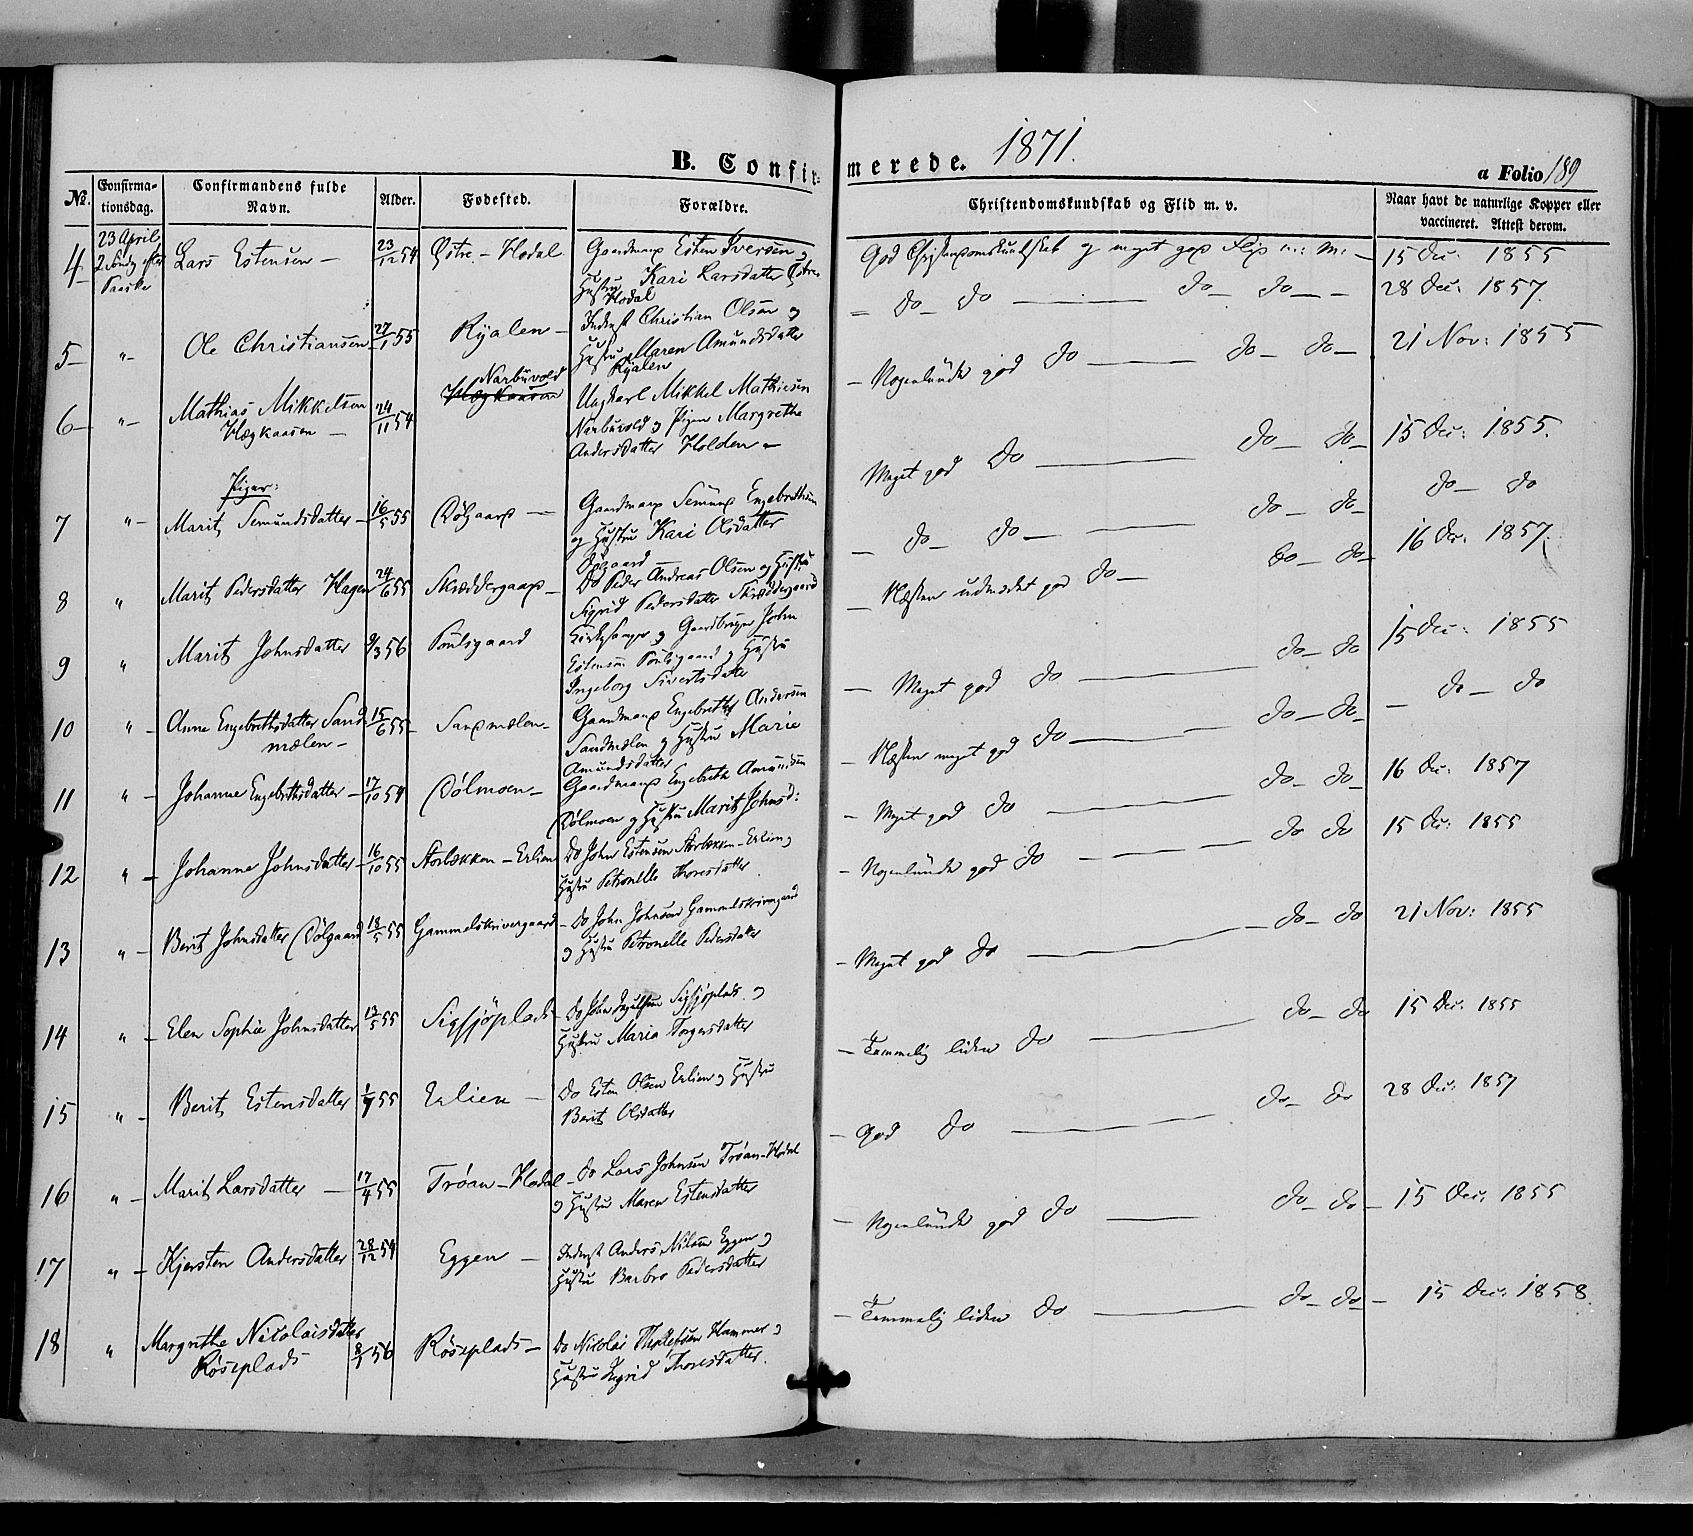 B. Confirmerede. 1871.
a Folio 189
No.
Confirmationsdag.
Confirmandens fulde Navn.
Alder.
Fødested.
Forældre.
Christendomskundskab og Flid m. v.
Naar havt de naturlige Kopper eller vaccineret. Attest derom.
4 23 April 2 Søndg efter Paaske Lars Estensen – 23/12 54 Østre – Hodal Gaardmand Esten Iversen og
Hustru Kari Larsdatter Østre
Hodal
God Christendomskundskab og meget god Flid m: m: – 15 Dec: 1855
5 „ – Ole Christiansen 27/1 55 Ryalen – Inderst Christian Olsen og
Hustru Maren Amundsdatter
Ryalen
= do – do – do – do – – 28 Dec: 1857.
6 – „ – Mathias Mikkelsen
Hægkaasen – 24/11 54 Narbuvold
Hægkaasen
Ungkarl Mikkel Mathiesen
Narbuvold og Pigen Margrethe
Andersdatter Holden –
– Nogenlunde god do – do – do – 21 Nov: 1855
Piger:
7 „ – Marit Semundsdatter – 16/5 55 Dølgaard – Gaardmand Semund Engebrethsen
og Hustru Kari Olsdatter
Dølgaard
Meget god do – do – do – 15 Dec: 1855.
8 „ Marit Pedersdatter Hagen 24/6 55 Skræddergaard – Do Peder Andreas Olsen og Hustru
Sigrid Pedersdatter Skræddergaard
– do – do – do – do – do – do
9 „ Marit Johnsdatter 9/3 56 Poulsgaard Kirkesanger og Gaardbruger John
Estensen Poulsgaard og Hustru
Ingeborg Sivertsdatter
– Næsten udmærket god do – do – do – 16 Dec: 1857.
10 „ – Anne Engebrethsdatter Sandmælen – 15/6 55 – Sandmælen – Gaardmand Engebreth Andersen
Sandmælen og Hustru Marie
Amundsdatter
– Meget god do – do – do 15 Dec: 1855
11 „ – Johanne Engebrethsdatter – 17/10 54 Dølmoen – Gaardmand Engebreth Amundsen
Dølmoen og Hustru Marit Johnsd:
– Næsten meget god do – do – do – – do – do
12 „ – Johanne Johnsdatter – 16/10 55 Storbækken – Erlien Do John Estensen Storbækken – Erlien og
Hustru Petronelle Thoresdatter
– Meget god do – do – do – 16 Dec: 1857
13 „ – Berit Johnsdatter Dølgaard 13/5 55 Gammelskrivergaard – Do John Johnsen Gammelskrivergaard
og Hustru Petronelle Pedersdatter
– Nogenlunde god do – do do 15 Dec: 1855
14 „ – Elen Sophie Johnsdatter 17/5 55 Sigsjøplads – Do John Sigsjøplads og
Hustru Maria Torgersdatter
– Meget god do – do – do 21 Nov: 1855
15 „ – Berit Estensdatter 1/7 55 Erlien – Do Esten Olsen Erlien og Hustru
Berit Olsdatter
– Temmelig liden do – do – do 15 Dec: 1855
16 „ – Marit Larsdatter – 17/4 55 Trøan – Hodal – Do Lars Johnsen Trøan – Hodal
og Hustru Maren Estensdatter
– God do – do – do 28 Dec: 1857
17 „ – Kjersten Andersdatter 28/12 54 Eggen – Inderst Anders Nilsen Eggen og
Hustru Barbro Pedersdatter
– Nogenlunde god do – do – do – 15 Dec: 1855
18 „ Margrethe Nicolaisdatter
Røseplads 8/1 56 Røseplads – Do Nicolai Hammer og
Hustru Sigrid Thoresdatter.
– Temmelig liden do – do – do – 15 Dec: 1858.